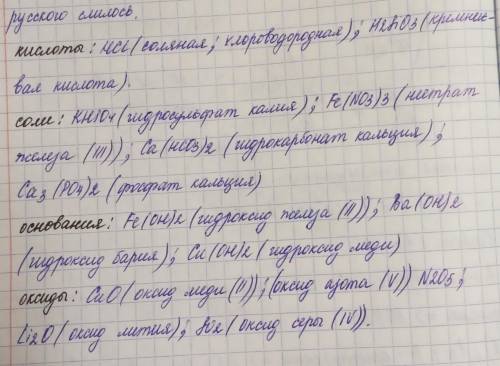 русского слилось.
кислоты: HCl (соляная; хлороводородная); H2SiO3 (кремние-
вая кислота).
соли: KHSO4 (гидросульфат калия); Fe(NO3)3 (нитрат
железа (III)); Ca(HCO3)2 (гидрокарбонат кальция);
Ca3(PO4)2 (фосфат кальция)
основания: Fe(OH)2 (гидроксид железа (II)); Ba(OH)2
(гидроксид бария); Cu(OH)2 (гидроксид меди)
оксиды: CuO (оксид меди (II)); (оксид азота (V)) N2O5;
Li2O (оксид лития); SO2 (оксид серы (IV)).